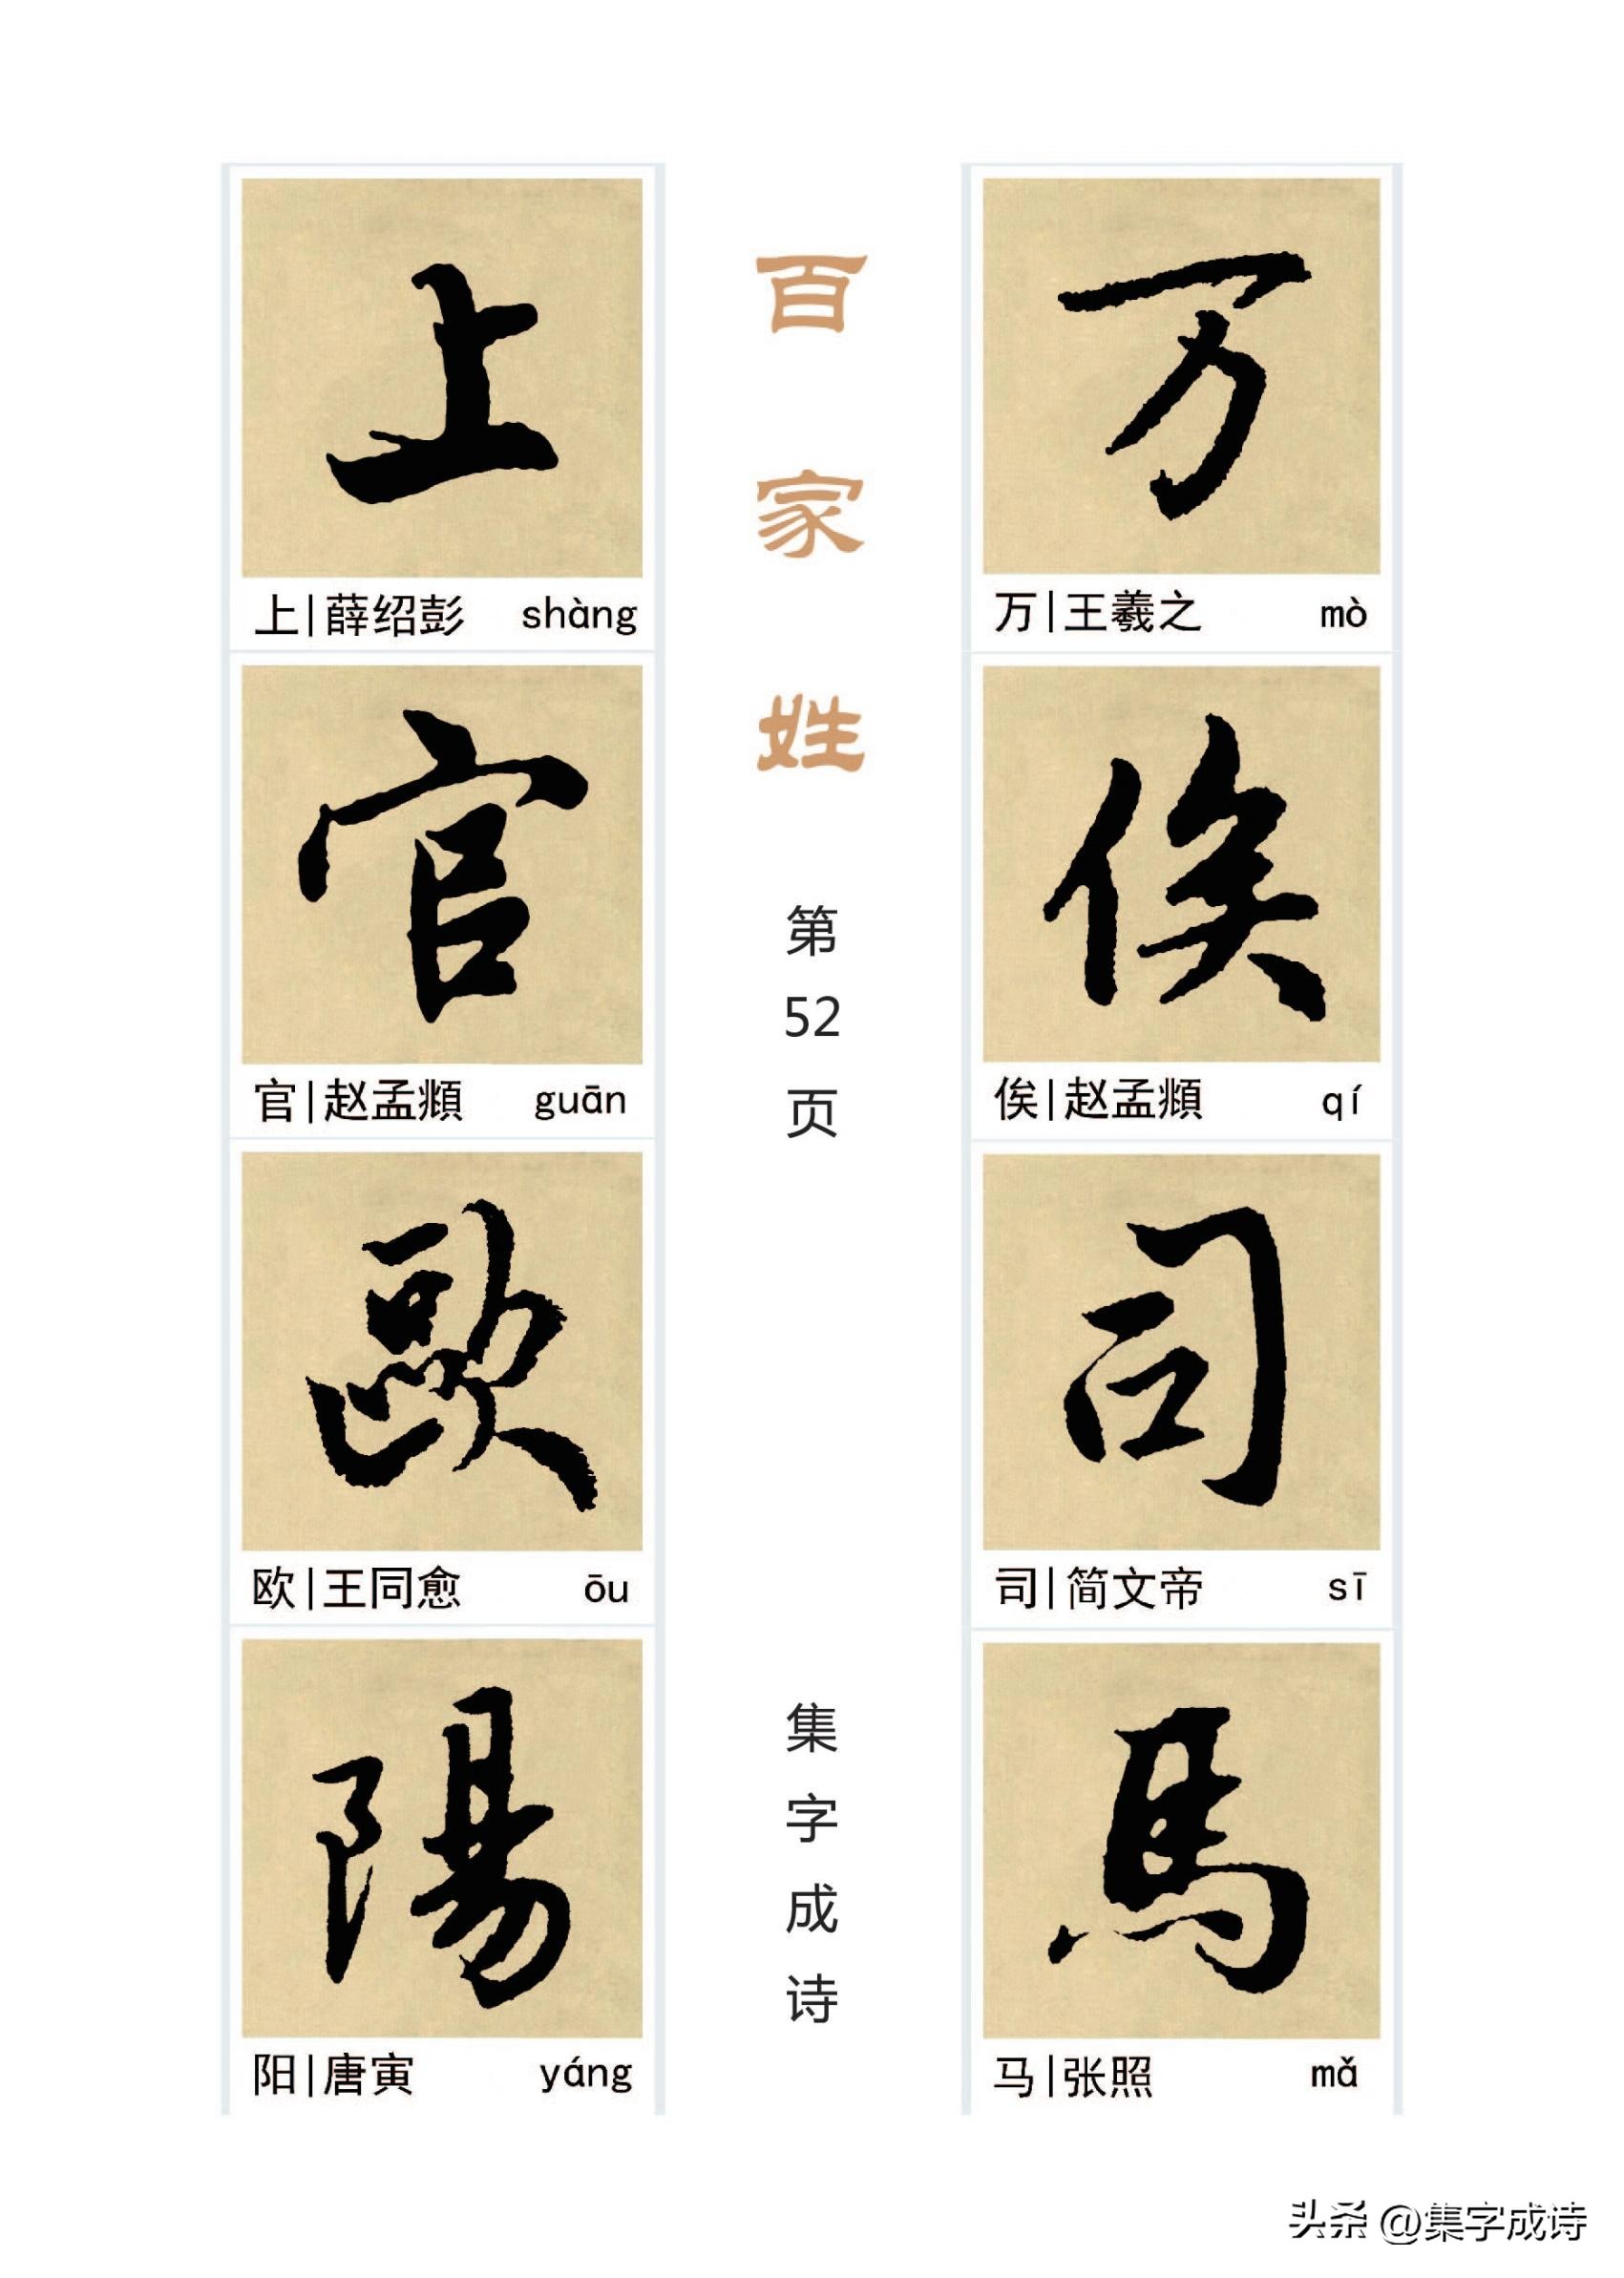 万
万|王羲之 mò
俟
俟|赵孟頫 qí
司
司|简文帝 sī
馬
马|张照 mǎ
百家姓
第52页
集字成诗
上
上|薛绍彭 shàng
官
官|赵孟頫 guān
歐
欧|王同愈 ōu
陽
阳|唐寅 yáng
头条 @集字成诗